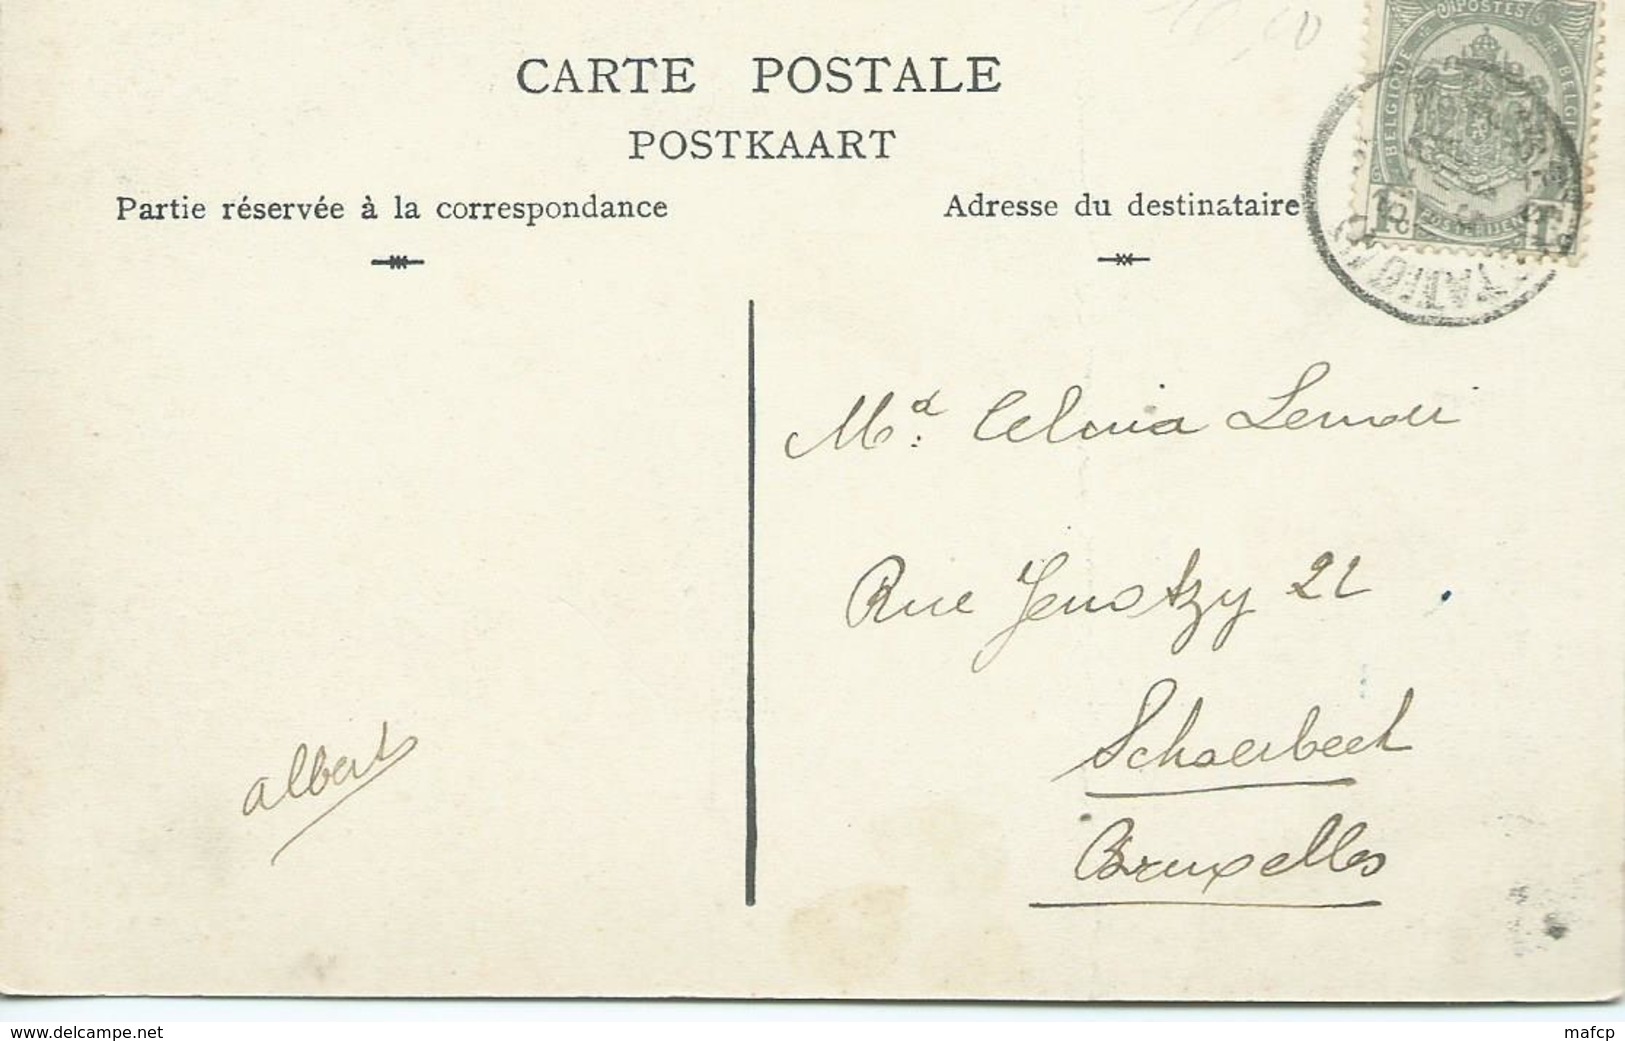 CARTE POSTALE
POSTKAART
Partie réservée à la correspondance
Adresse du destinataire
POSTES
BELGIQUE
BELGI
1c 1c
POSTERIJEN
Md. Celinia Lemoi
Rue Jenatzy 21
Schaerbeek
Bruxelles
albert
www.delcampe.net
mafcp